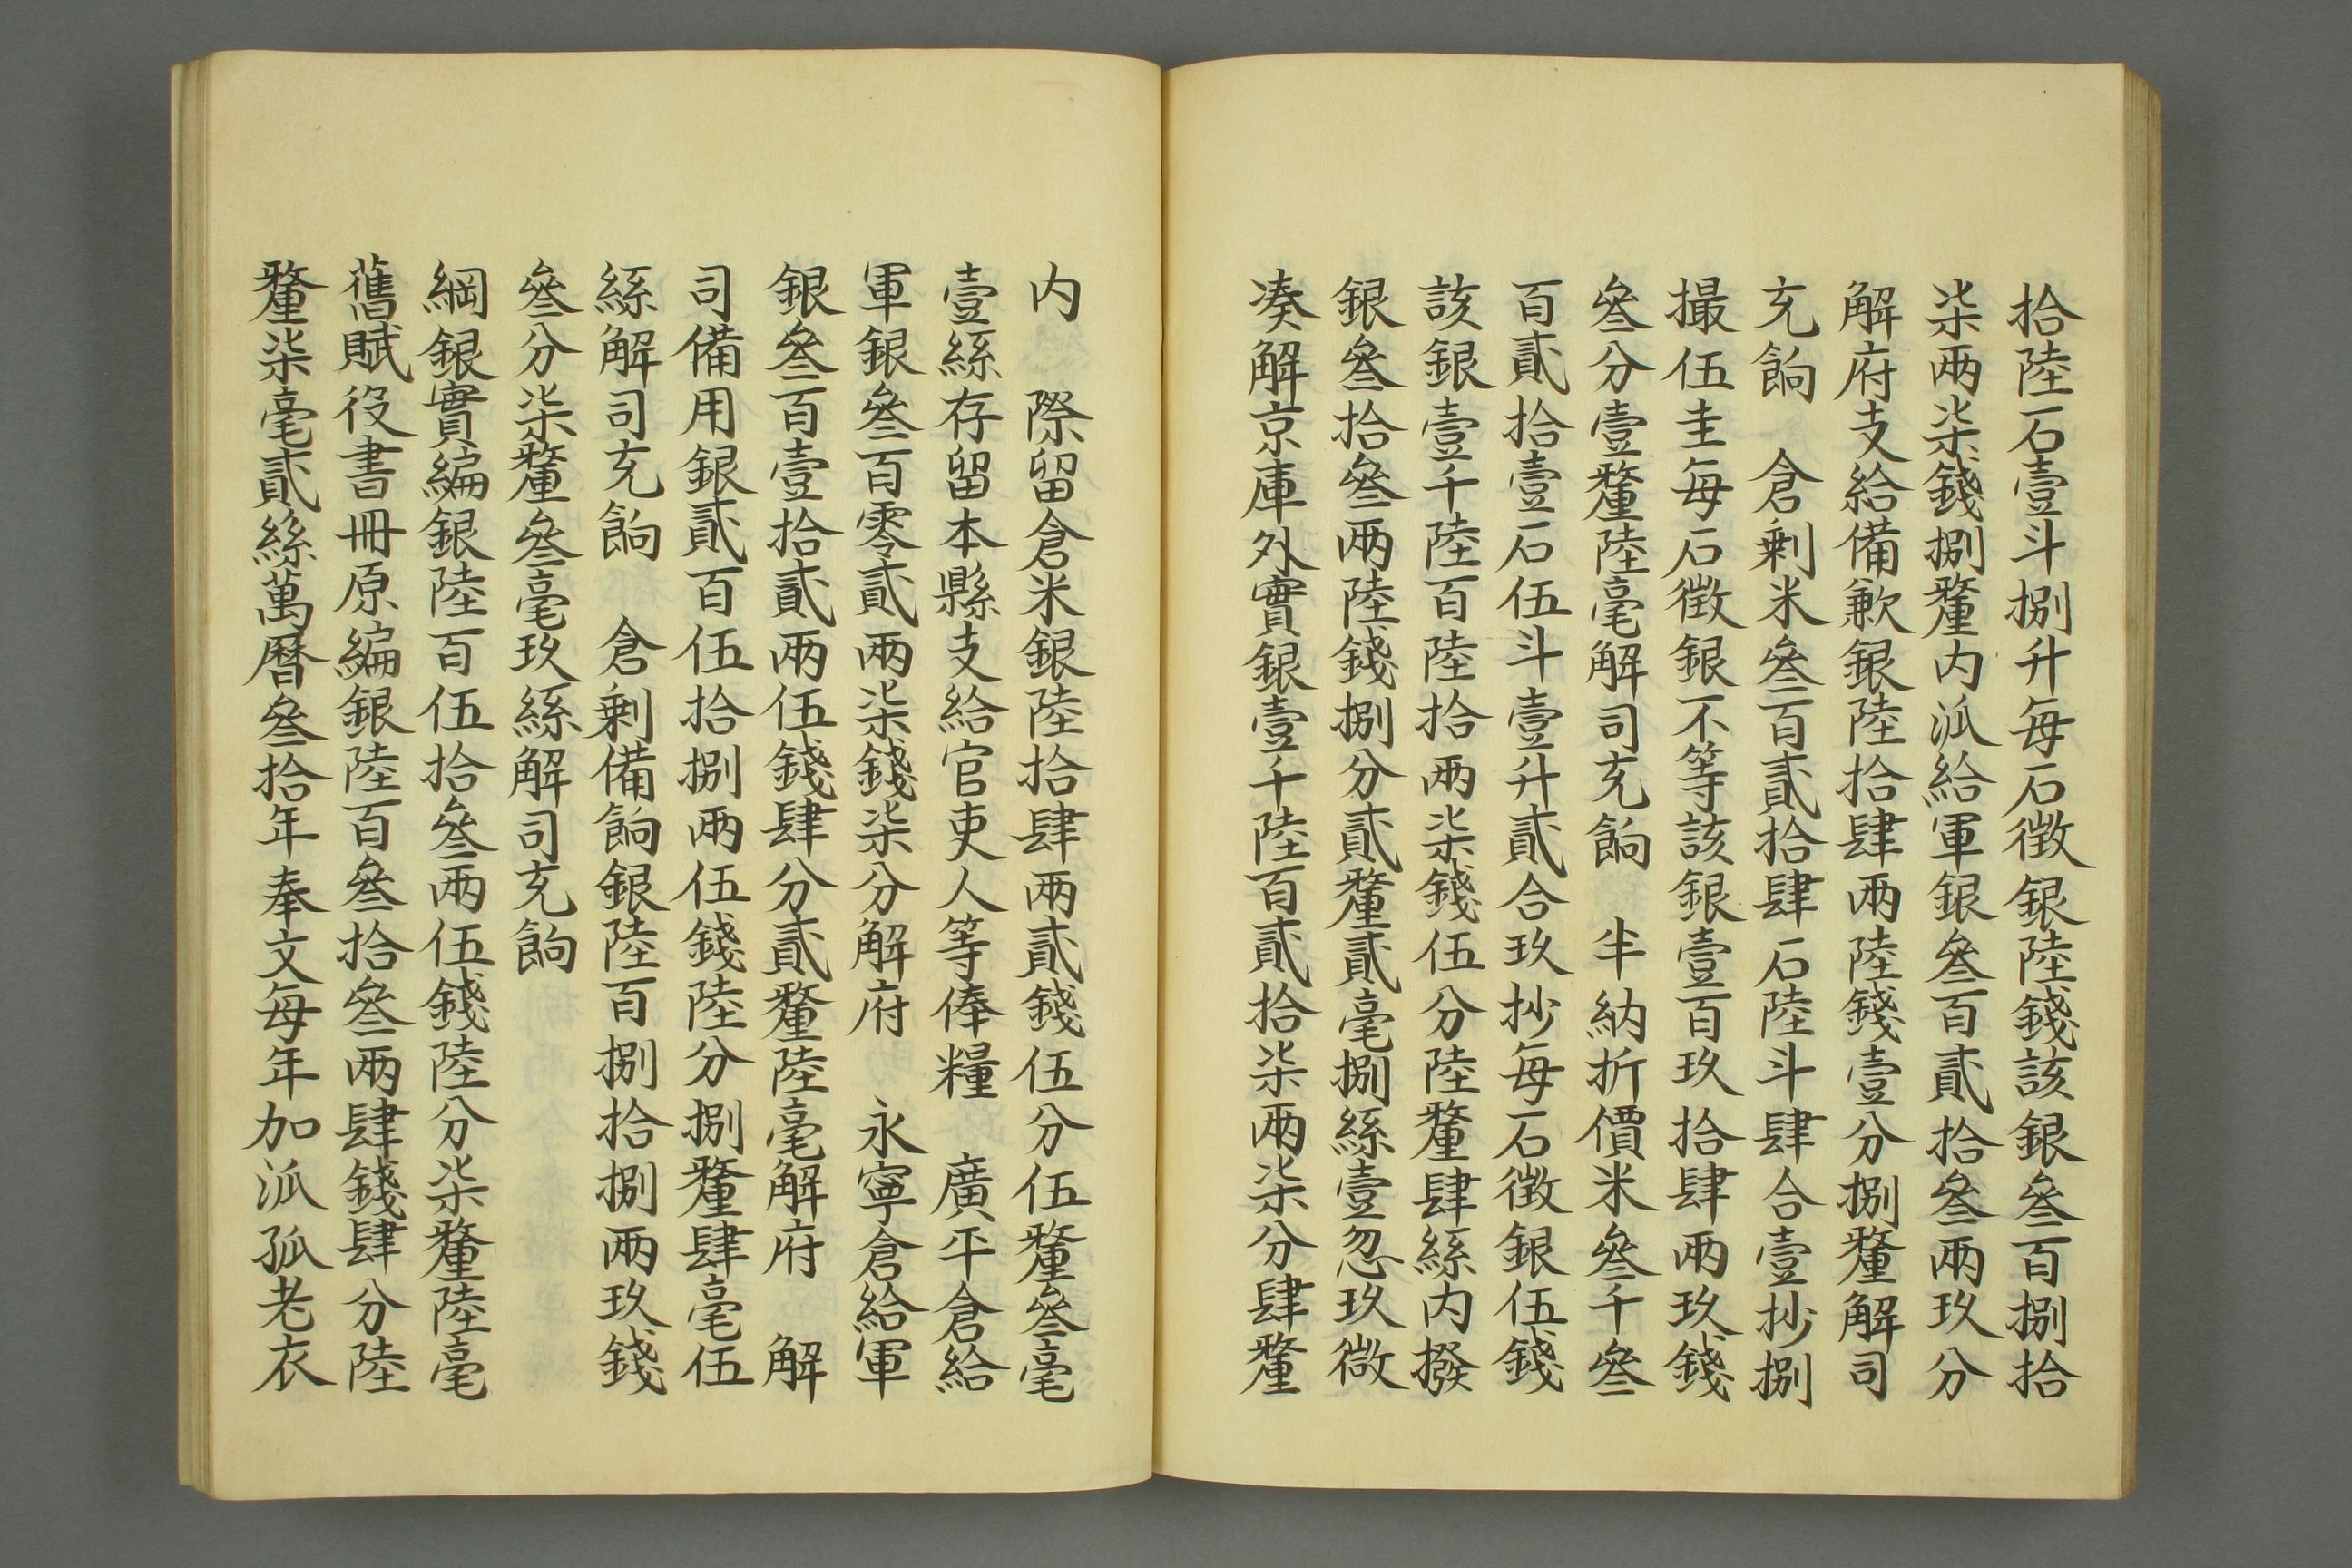 拾陸石壹斗捌升每石徵銀陸錢該銀叄百捌拾
柒兩柒錢捌釐内泒給軍銀叄百貳拾叄兩玖分
解府支給備歉銀陸拾肆兩陸錢壹分捌釐解司
充餉　倉剩米叄百貳拾肆石陸斗肆合壹抄捌
撮伍圭每石徵銀不等該銀壹百玖拾肆兩玖錢
叄分壹釐陸毫解司充餉　半納折價米叄千叄
百貳拾壹石伍斗壹升貳合玖抄每石徵銀伍錢
該銀壹千陸百陸拾兩柒錢伍分陸釐肆絲内撥
銀叄拾叄兩陸錢捌分貳釐貳毫捌絲壹忽玖微
凑解京庫外實銀壹千陸百貳拾柒兩柒分肆釐
内　際留倉米銀陸拾肆兩貳錢伍分伍釐叄毫
壹絲存留本縣支給官吏人等俸糧　廣平倉給
軍銀叄百零貳兩柒錢柒分解府　永寧倉給軍
銀叄百壹拾貳兩伍錢肆分貳釐陸毫解府　解
司備用銀貳百伍拾捌兩伍錢陸分捌釐肆毫伍
絲解司充餉　倉剩備餉銀陸百捌拾捌兩玖錢
叄分柒釐叄毫玖絲解司充餉
綱銀實編銀陸百伍拾叄兩伍錢陸分柒釐陸毫
舊賦役書冊原編銀陸百叄拾叄兩肆錢肆分陸
釐柒毫貳絲萬曆叄拾年奉文每年加泒孤老衣